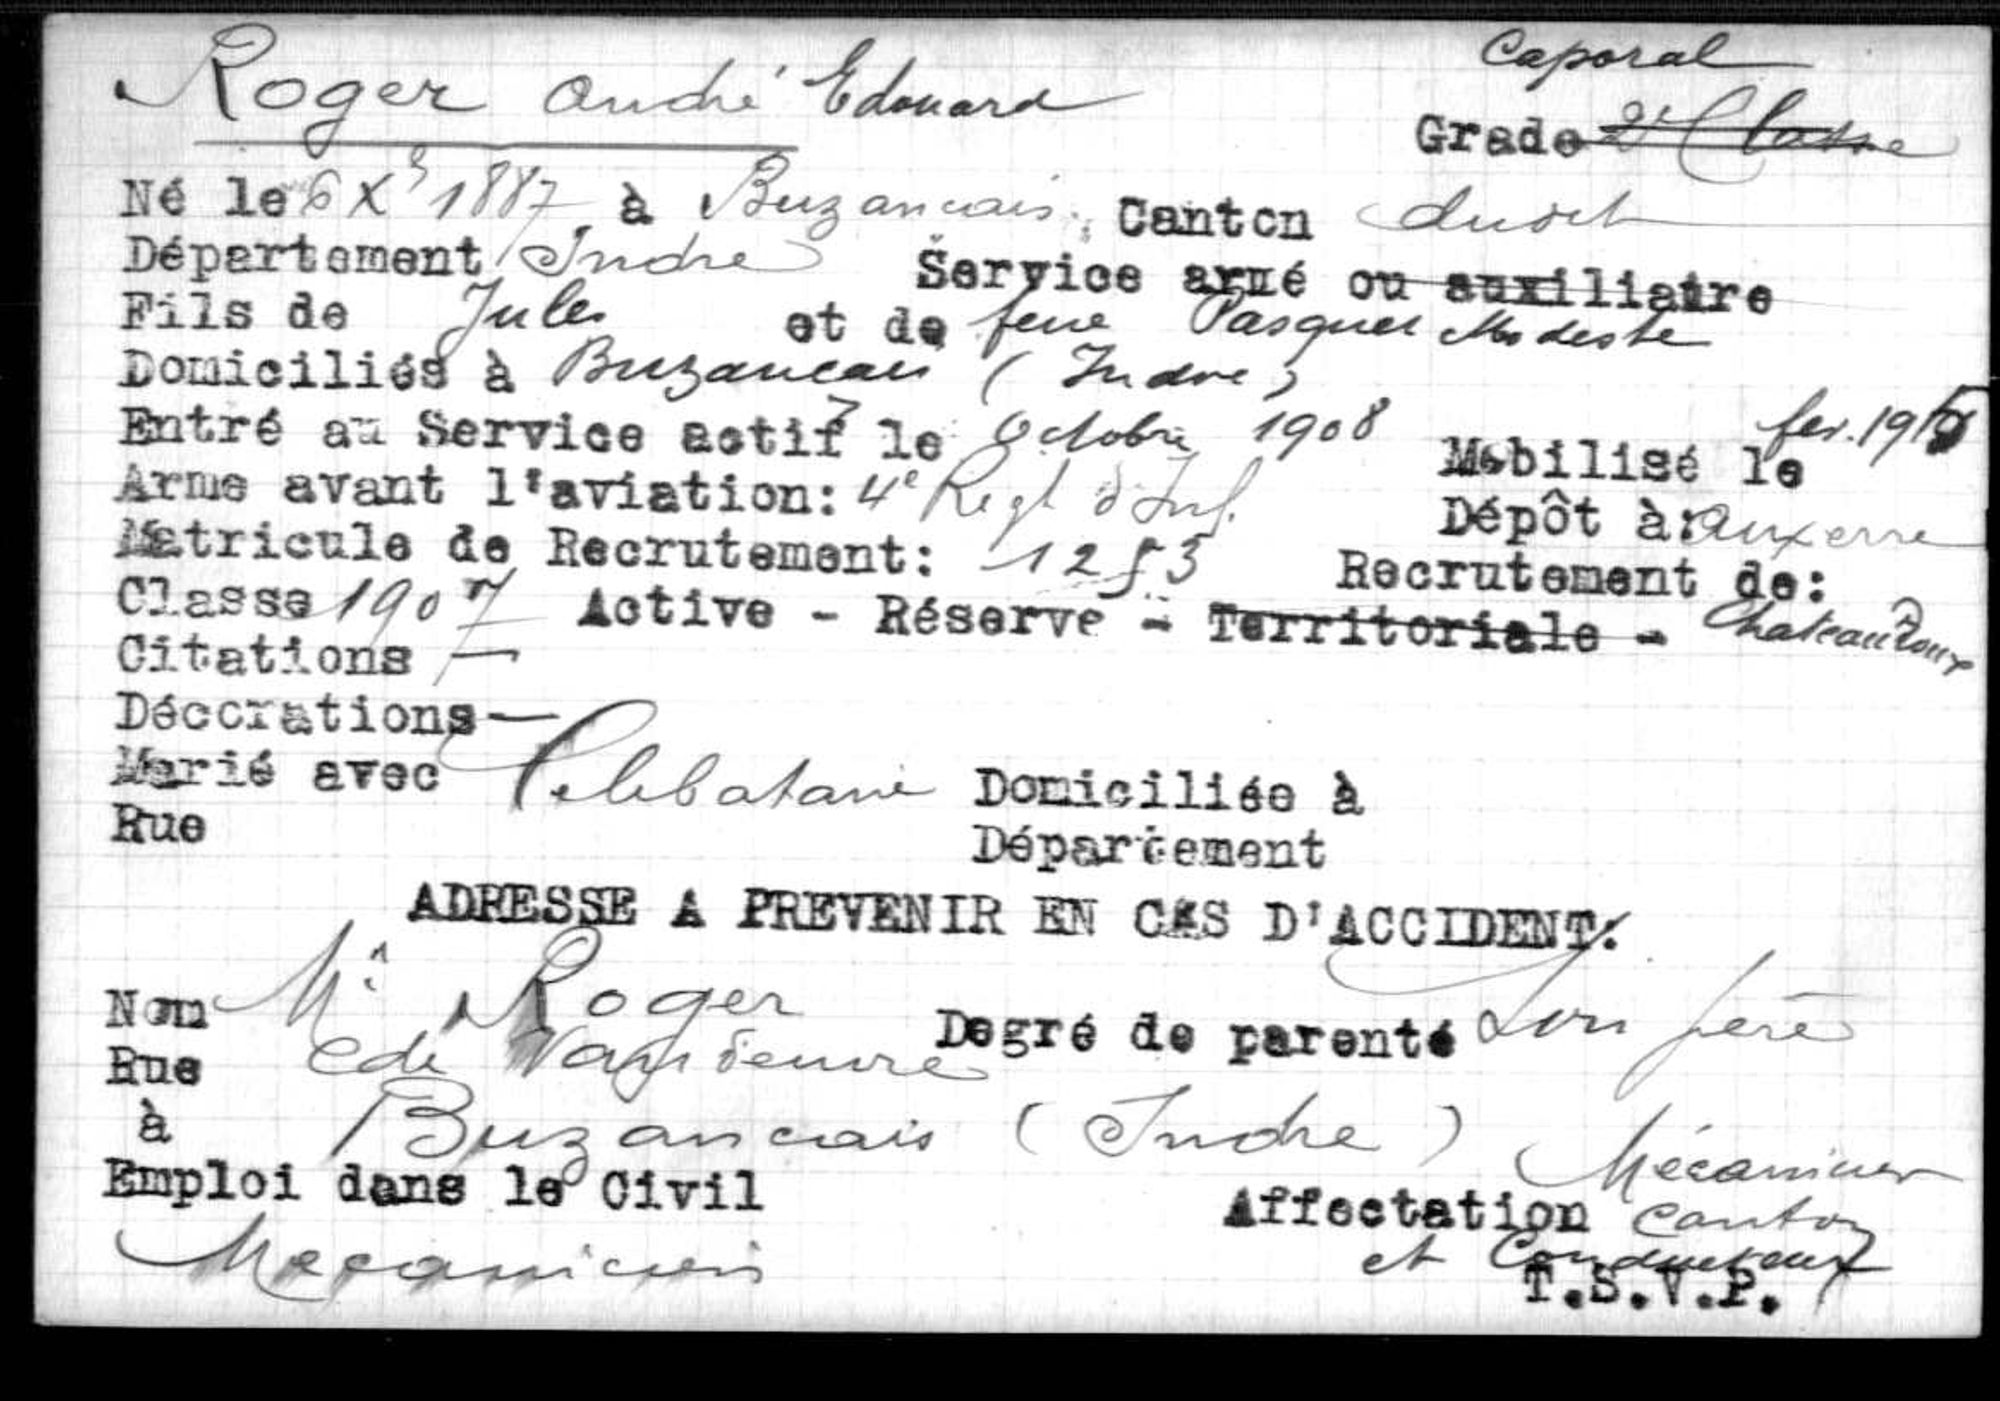 Caporal
Roger André Edouard
Grade 2e Classe
Né le 6 Xbre 1887 à Buzancais. Canton dudit
Département Indre Service armé ou auxiliaire
Fils de Jules et de feue Pasquet Modeste
Domiciliés à Buzancais (Indre)
Entré au Service actif le 7 Octobre 1908 Mobilisé le fev. 1915
Arme avant l'aviation: 4e Regt d'Inf. Dépôt à: Auxerre
Matricule de Recrutement: 1253 Recrutement de:
Classe 1907 Active - Réserve - Territoriale - Chateauroux
Citations —
Décorations —
Marié avec Celebataire Domiciliée à
Rue Département
ADRESSE A PREVENIR EN CAS D'ACCIDENT:
Nom Mr Roger Degré de parenté Son père
Rue de Vandeuvre
à Buzancais (Indre)
Emploi dans le Civil Affectation Mécanicien
Mecanicien et Conducteur
T.S.V.P.